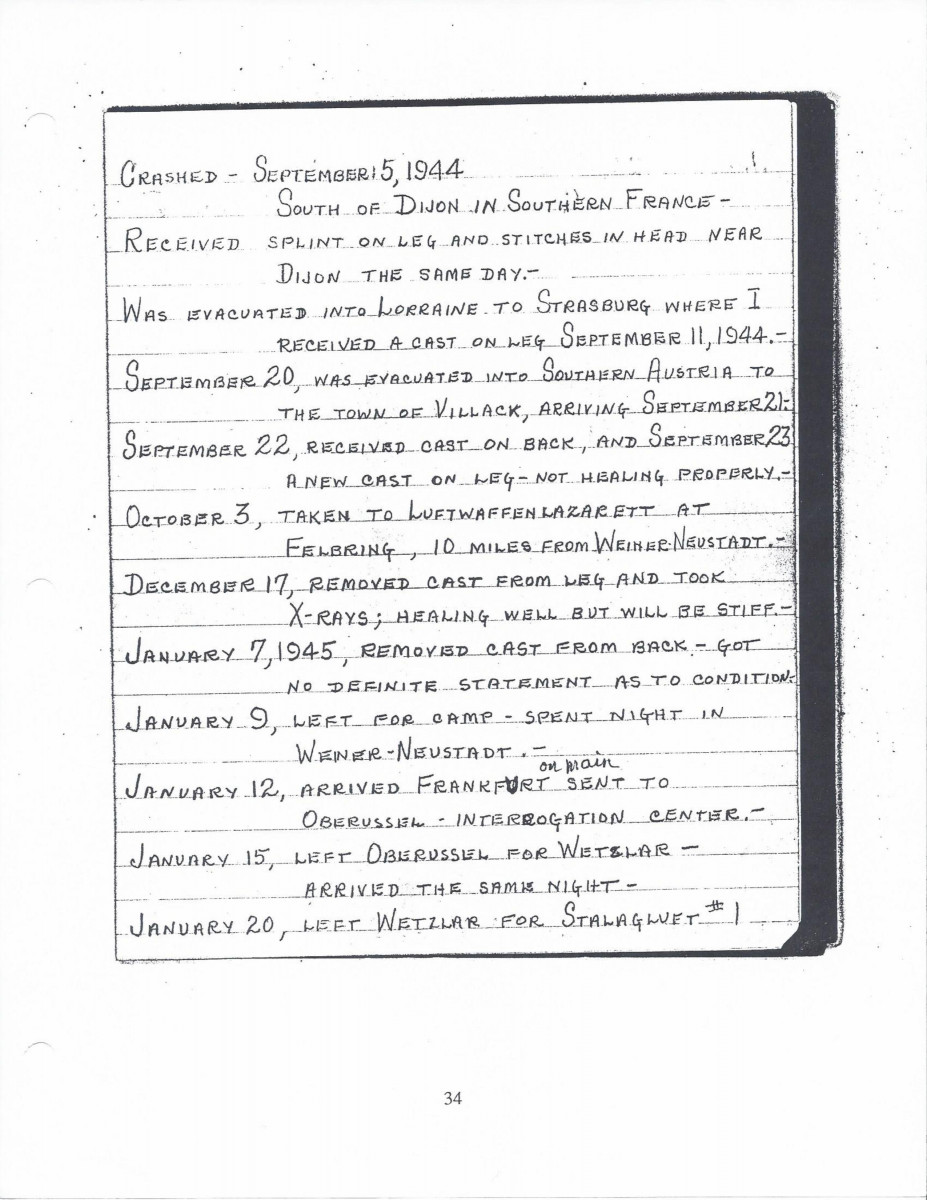 1.
CRASHED - SEPTEMBER 5, 1944
SOUTH OF DIJON IN SOUTHERN FRANCE -
RECEIVED SPLINT ON LEG AND STITCHES IN HEAD NEAR
DIJON THE SAME DAY.-
WAS EVACUATED INTO LORRAINE TO STRASBURG WHERE I
RECEIVED A CAST ON LEG SEPTEMBER 11, 1944.-
SEPTEMBER 20, WAS EVACUATED INTO SOUTHERN AUSTRIA TO
THE TOWN OF VILLACK, ARRIVING SEPTEMBER 21.-
SEPTEMBER 22, RECEIVED CAST ON BACK, AND SEPTEMBER 23
A NEW CAST ON LEG - NOT HEALING PROPERLY.-
OCTOBER 3, TAKEN TO LUFTWAFFENLAZARETT AT
FELBRING, 10 MILES FROM WEINER-NEUSTADT.-
DECEMBER 17, REMOVED CAST FROM LEG AND TOOK
X-RAYS; HEALING WELL BUT WILL BE STIFF.-
JANUARY 7, 1945, REMOVED CAST FROM BACK - GOT
NO DEFINITE STATEMENT AS TO CONDITION.-
JANUARY 9, LEFT FOR CAMP - SPENT NIGHT IN
WEINER-NEUSTADT.-
on main
JANUARY 12, ARRIVED FRANKFURT SENT TO
OBERUSSEL - INTERROGATION CENTER.-
JANUARY 15, LEFT OBERUSSEL FOR WETZLAR -
ARRIVED THE SAME NIGHT -
JANUARY 20, LEFT WETZLAR FOR STALAGLUFT #1
34